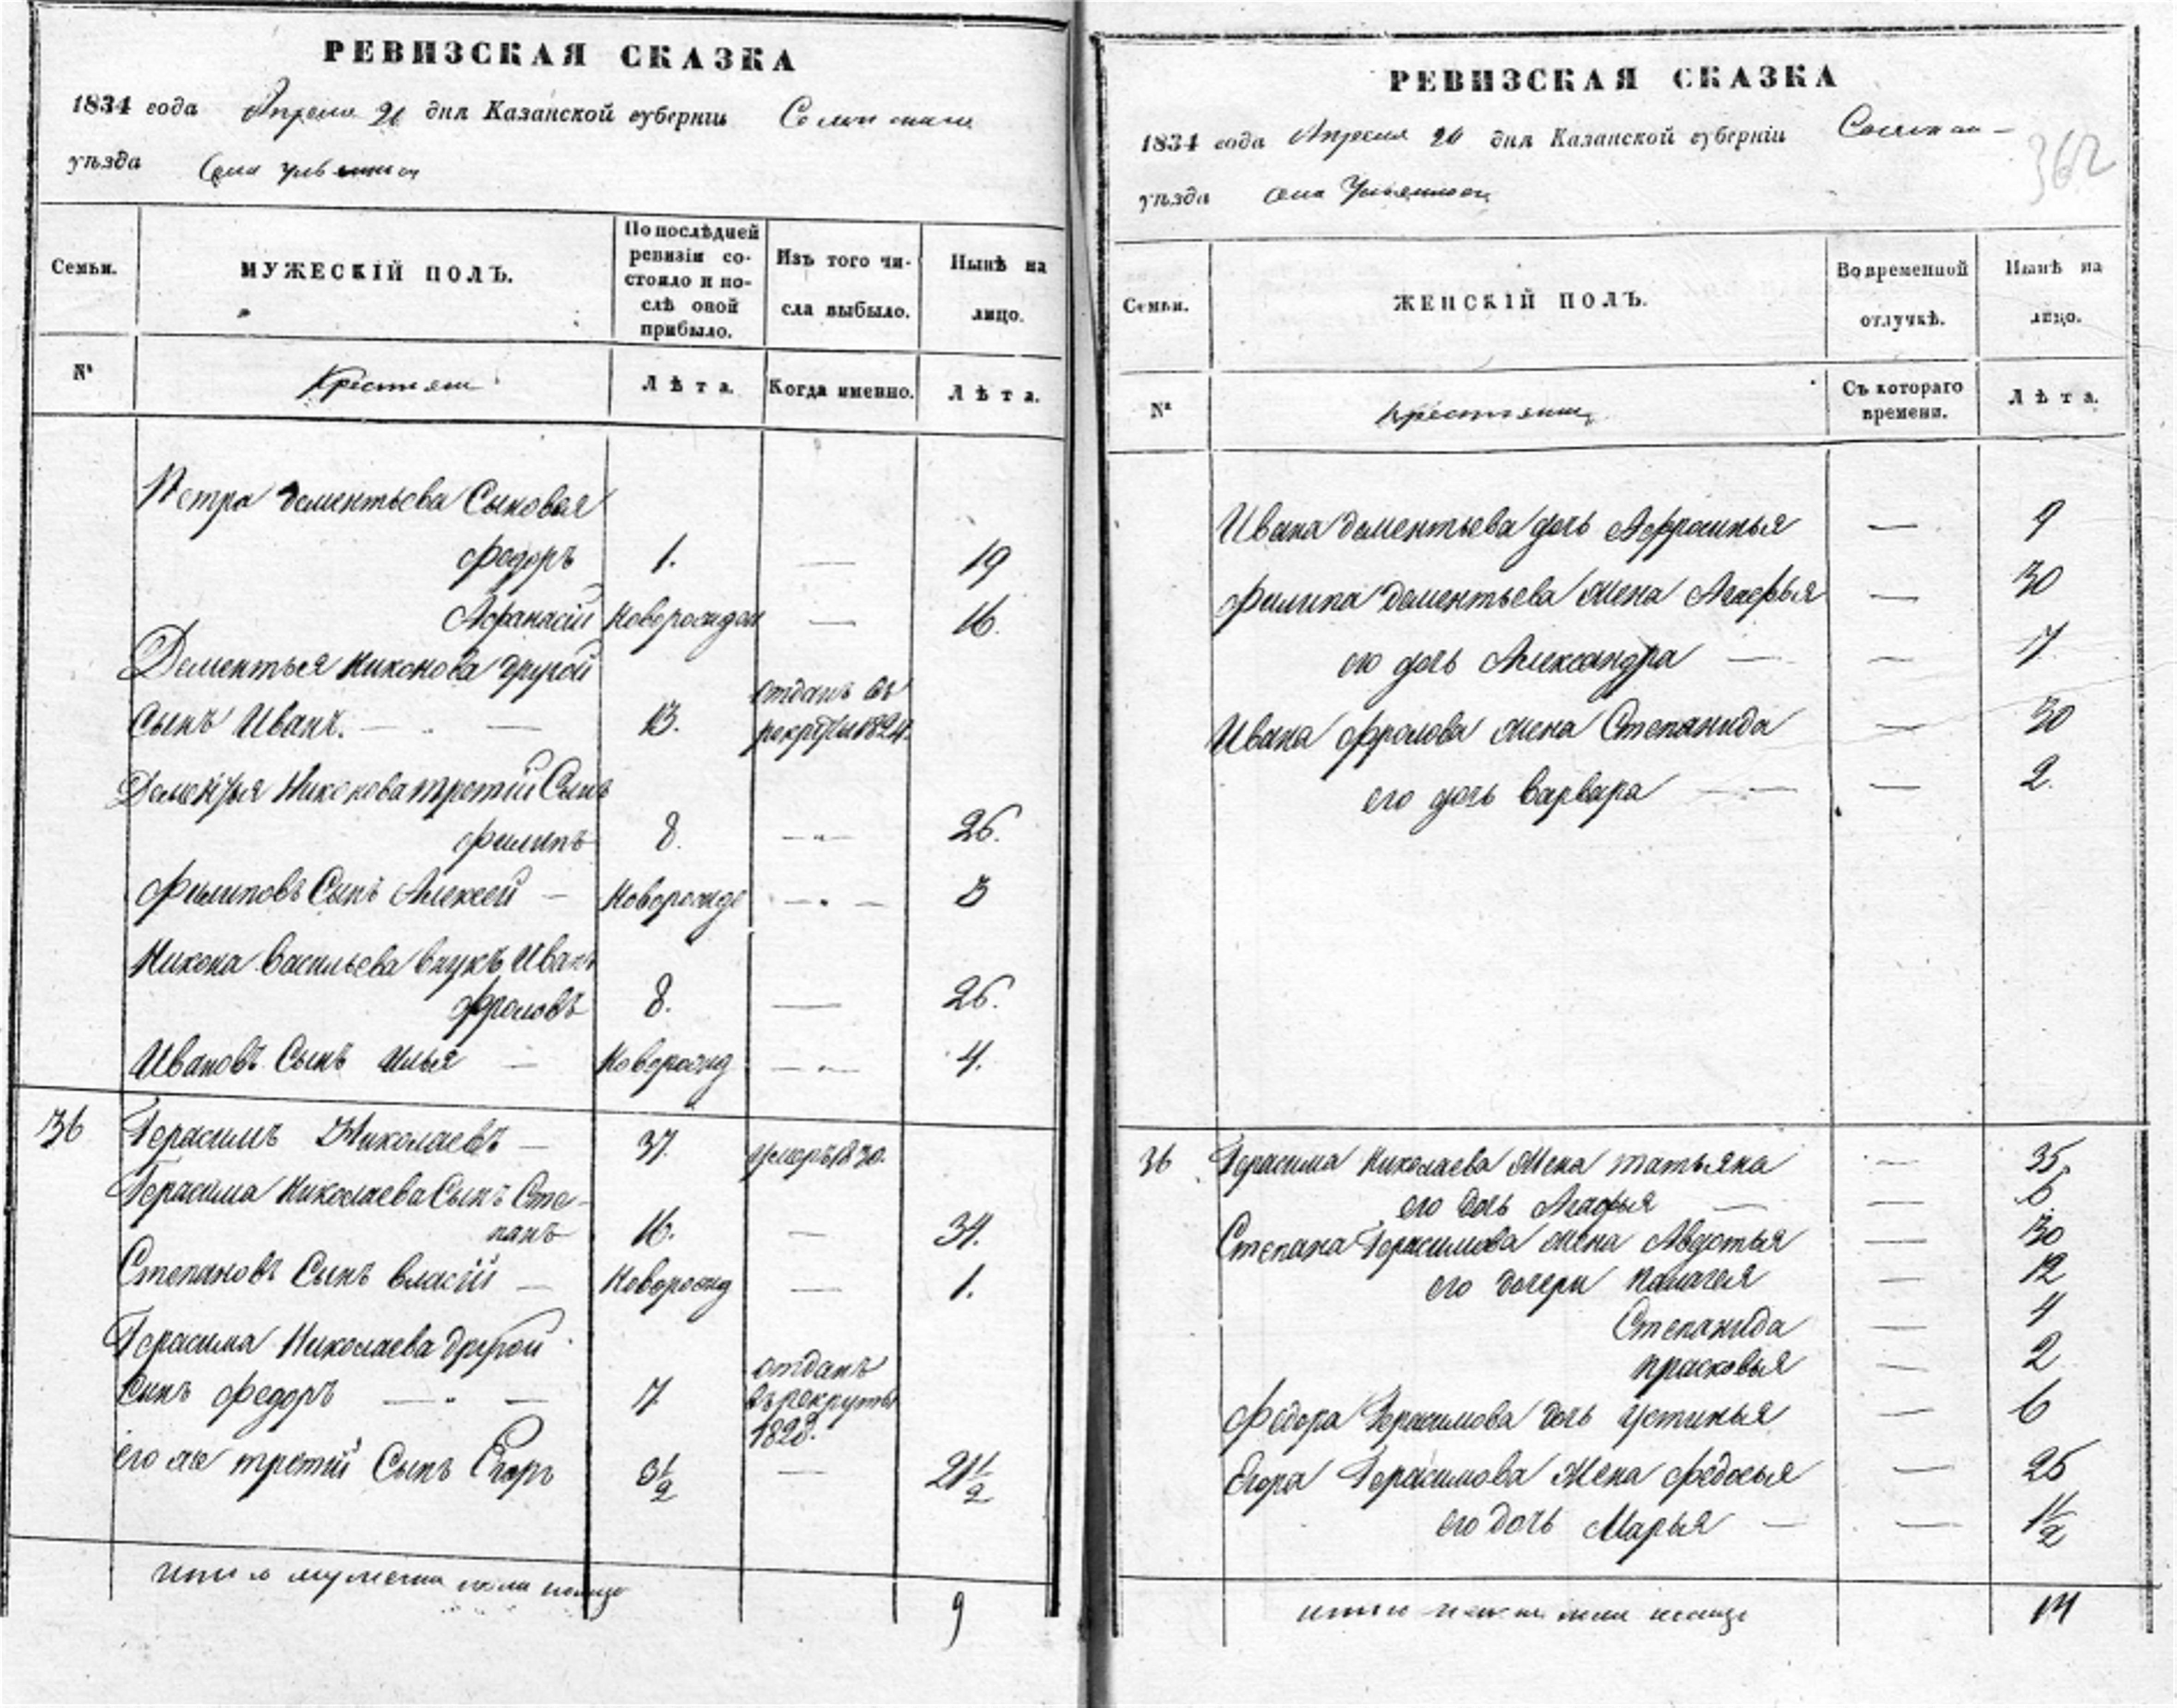 РЕВИЗСКАЯ СКАЗКА
1834 года Апреля 20 дня Казанской губерніи
уѣзда Села
Семьи.
МУЖЕСКІЙ ПОЛЪ.
По послѣдней ревизіи состояло и послѣ оной прибыло.
Изъ того числа выбыло.
Нынѣ на лицо.
№
Крестьяне
Лѣта.
Когда именно.
Лѣта.
Петра Дементьева Сыновья
Федоръ 1. — 19
Афанасій Новорожден — 16.
Дементья Никонова другой
сынъ Иванъ. — 13. отданъ въ рекруты 1824.
Дементья Никонова третій Сынъ
Филипъ 8. — 26.
Филиповъ Сынъ Алексей — Новорожде — 3
Никона Васильева внукъ Иванъ
Фроловъ 8. — 26.
Ивановъ Сынъ Илья — Новорожд — 4.
36 Герасимъ Николаевъ — 37. умеръ 1830.
Герасима Николаева Сынъ Сте-
панъ 16. — 34.
Степановъ Сынъ Власій — Новорожд — 1.
Герасима Николаева другой
сынъ Федоръ — 7 отданъ въ рекруты 1828.
его же третій Сынъ Егоръ 3 1/2 — 21 1/2
итого мужеска пола налицо 9
РЕВИЗСКАЯ СКАЗКА
1834 года Апреля 20 дня Казанской губерніи
362
уѣзда села
Семьи.
ЖЕНСКІЙ ПОЛЪ.
Во временной отлучкѣ.
Нынѣ на лицо.
№
Съ котораго времени.
Лѣта.
Ивана Дементьева дочь Афросинья — 9
Филипа Дементьева жена Агафья — 30
его дочь Александра — — 7
Ивана Фролова жена Степанида — 30
его дочь Варвара — — 2.
36 Герасима Николаева жена Татьяна — 35.
его дочь Агафья — — 6
Степана Герасимова жена Авдотья — 30
его дочери Палагея — 12
Степанида — 4
Прасковья — 2
Федора Герасимова дочь Устинья — 6
Егора Герасимова жена Федосья — 25
его дочь Марья — — 1 1/2
итого женска пола налицо 14